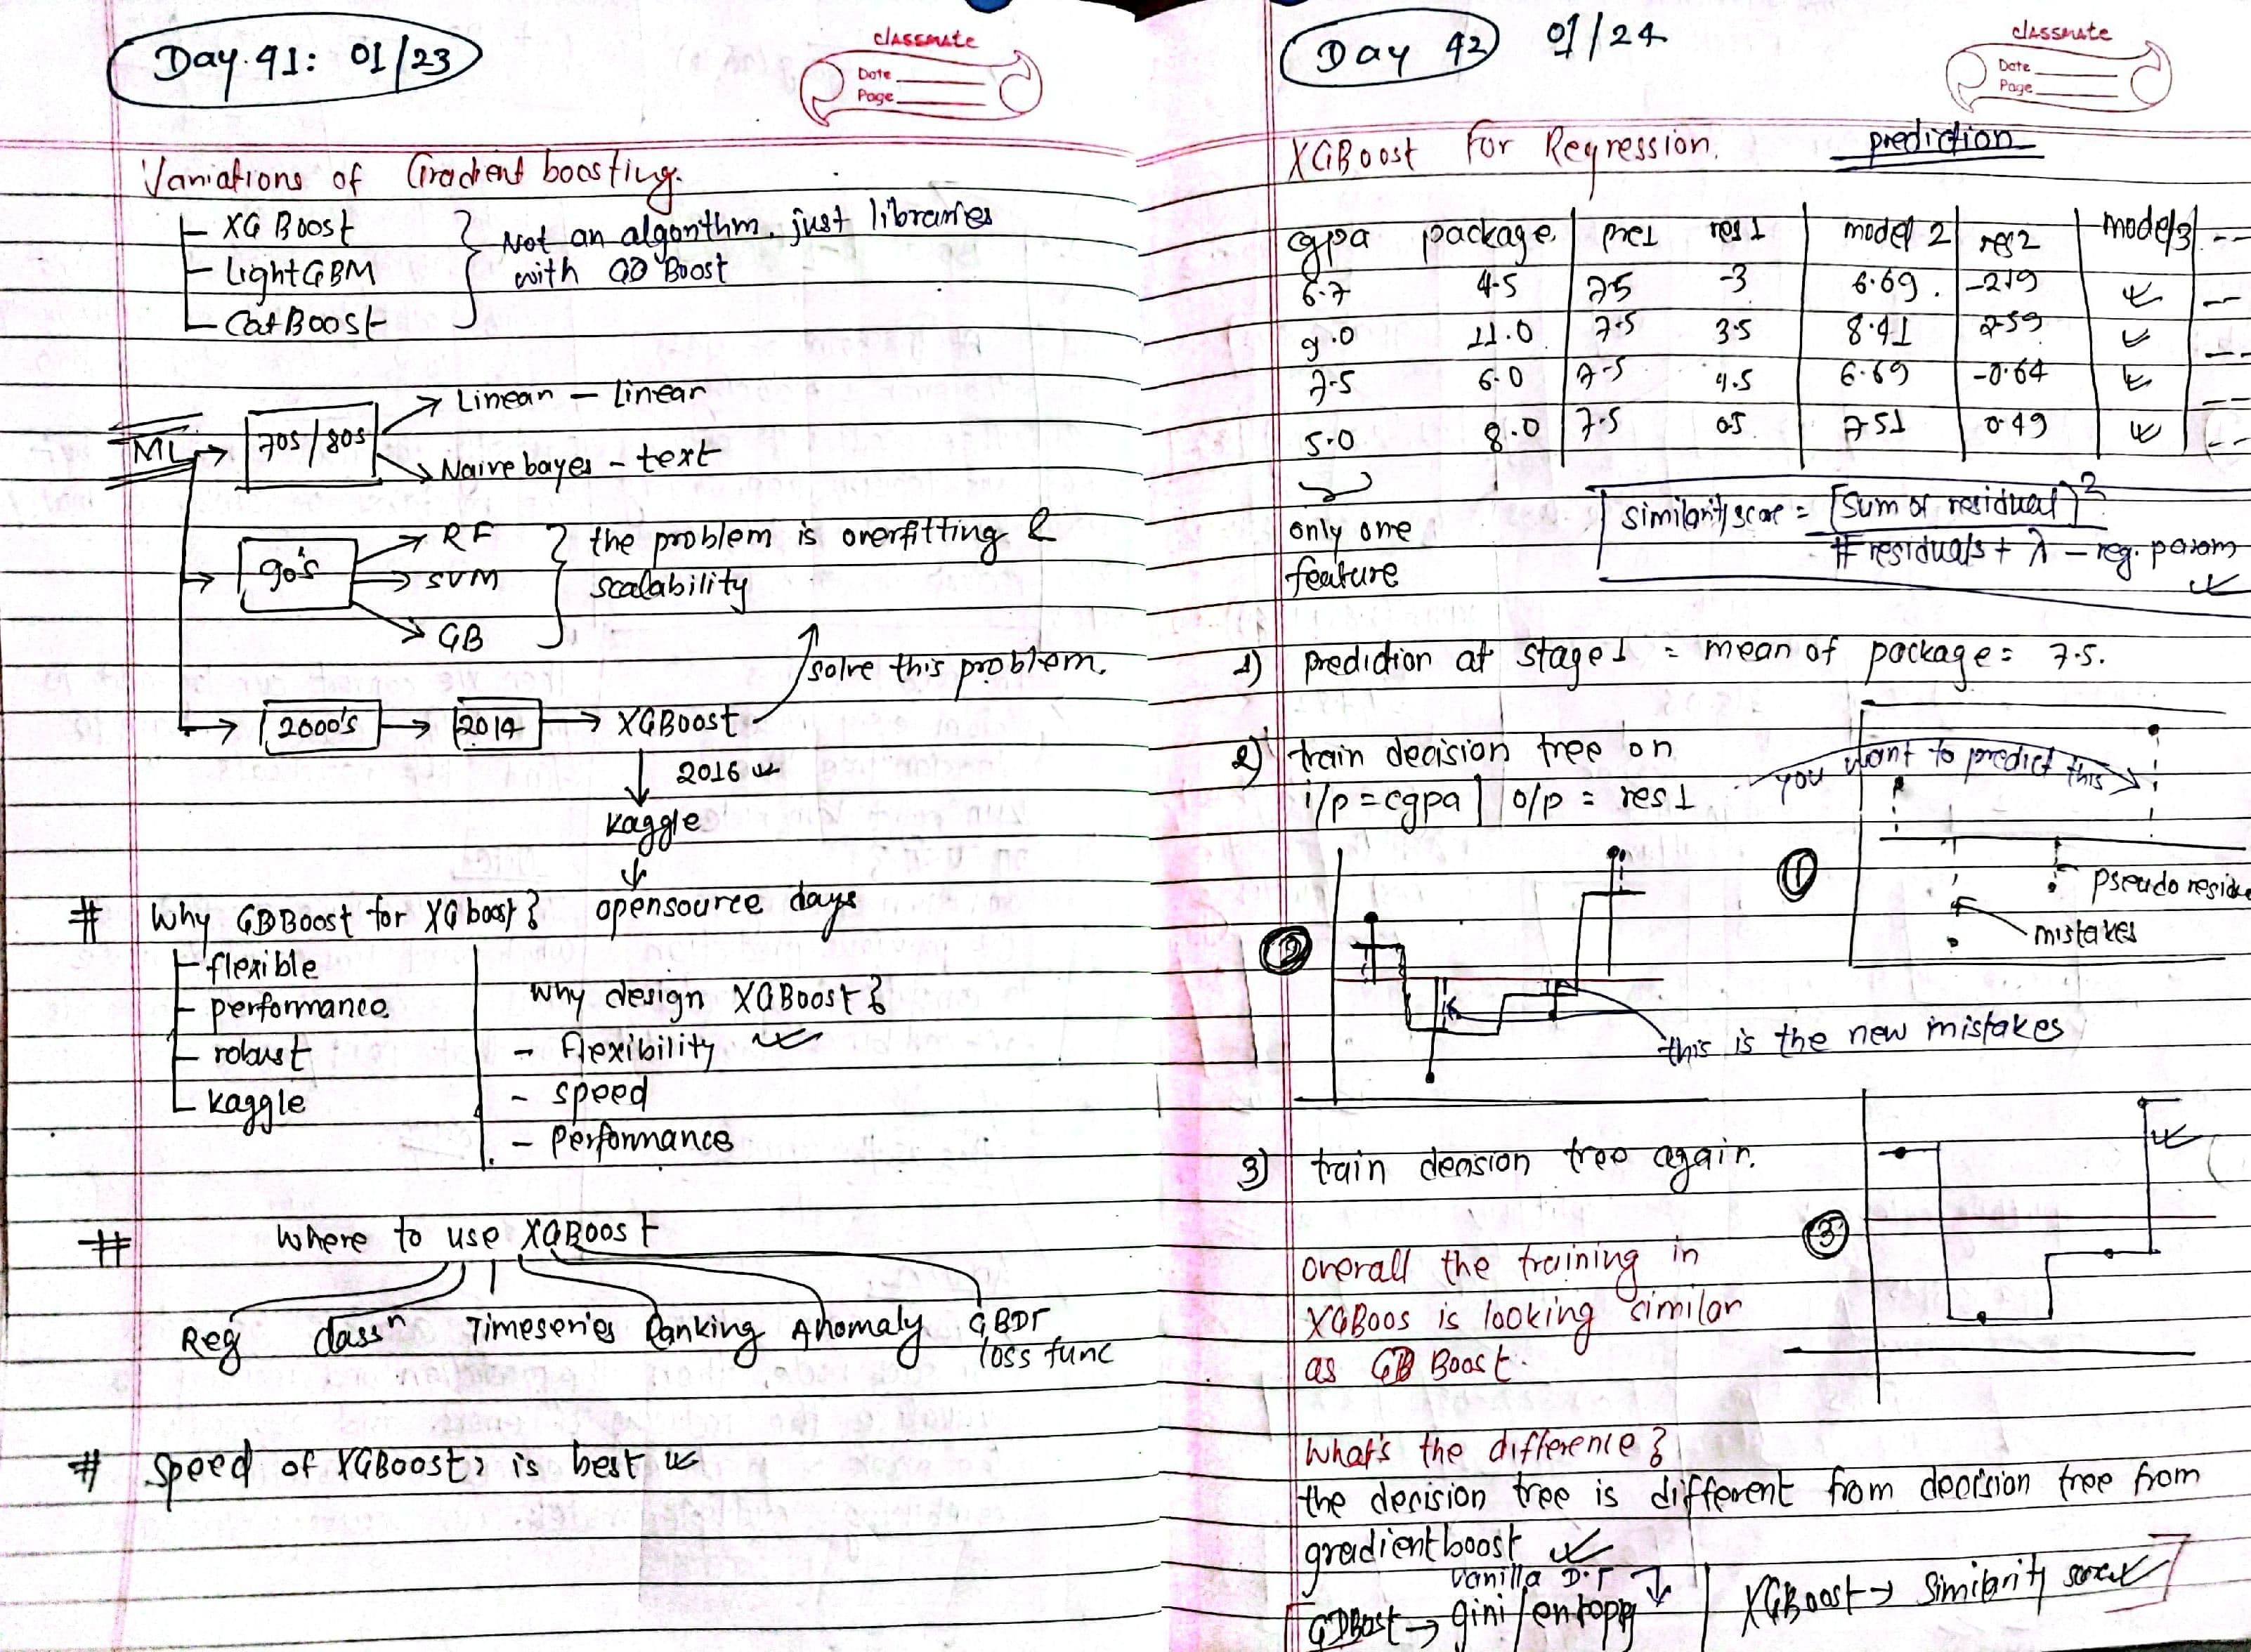 Day 41: 01/23
classmate
Date
Page
Variations of Gradient boosting.
XG Boost
LightGBM
CatBoost
Not an algorithm, just libraries
with GD Boost
ML
70s/80s
Linear - Linear
Naive bayes - text
90's
RF
SVM
GB
the problem is overfitting &
scalability
solve this problem.
2000's
2014
XGBoost
2016
kaggle
opensource days
# Why GDBoost for XGboost?
flexible
performance
robust
kaggle
Why design XGBoost?
- Flexibility
- speed
- Performance
# Where to use XGBoost
Reg
classⁿ
Timeseries
Ranking
Anomaly
GBDT
loss func
# Speed of XGBoost, is best
Day 42 01/24
classmate
Date
Page
XGBoost For Regression. prediction
cgpa package pre1 res1 model 2 res2 model3 --
6.7 4.5 7.5 -3 6.69 -2.19 --
9.0 11.0 7.5 3.5 8.41 2.59 --
7.5 6.0 7.5 4.5 6.69 -0.64 --
5.0 8.0 7.5 0.5 7.51 0.49 --
only one
feature
similarity score = [Sum of residual]²
# residuals + λ - reg. param
1) prediction at stage 1 = mean of package = 7.5.
2) train decision tree on
i/p = cgpa | o/p = res1
you want to predict this
1
pseudo residu
mistakes
2
this is the new mistakes
3) train decision tree again.
3
overall the training in
XGBoos is looking similar
as GD Boost.
What's the difference?
the decision tree is different from decision tree from
gradientboost
Vanilla D.T
GDBost → gini/entropy
XGBoost → Similarity score